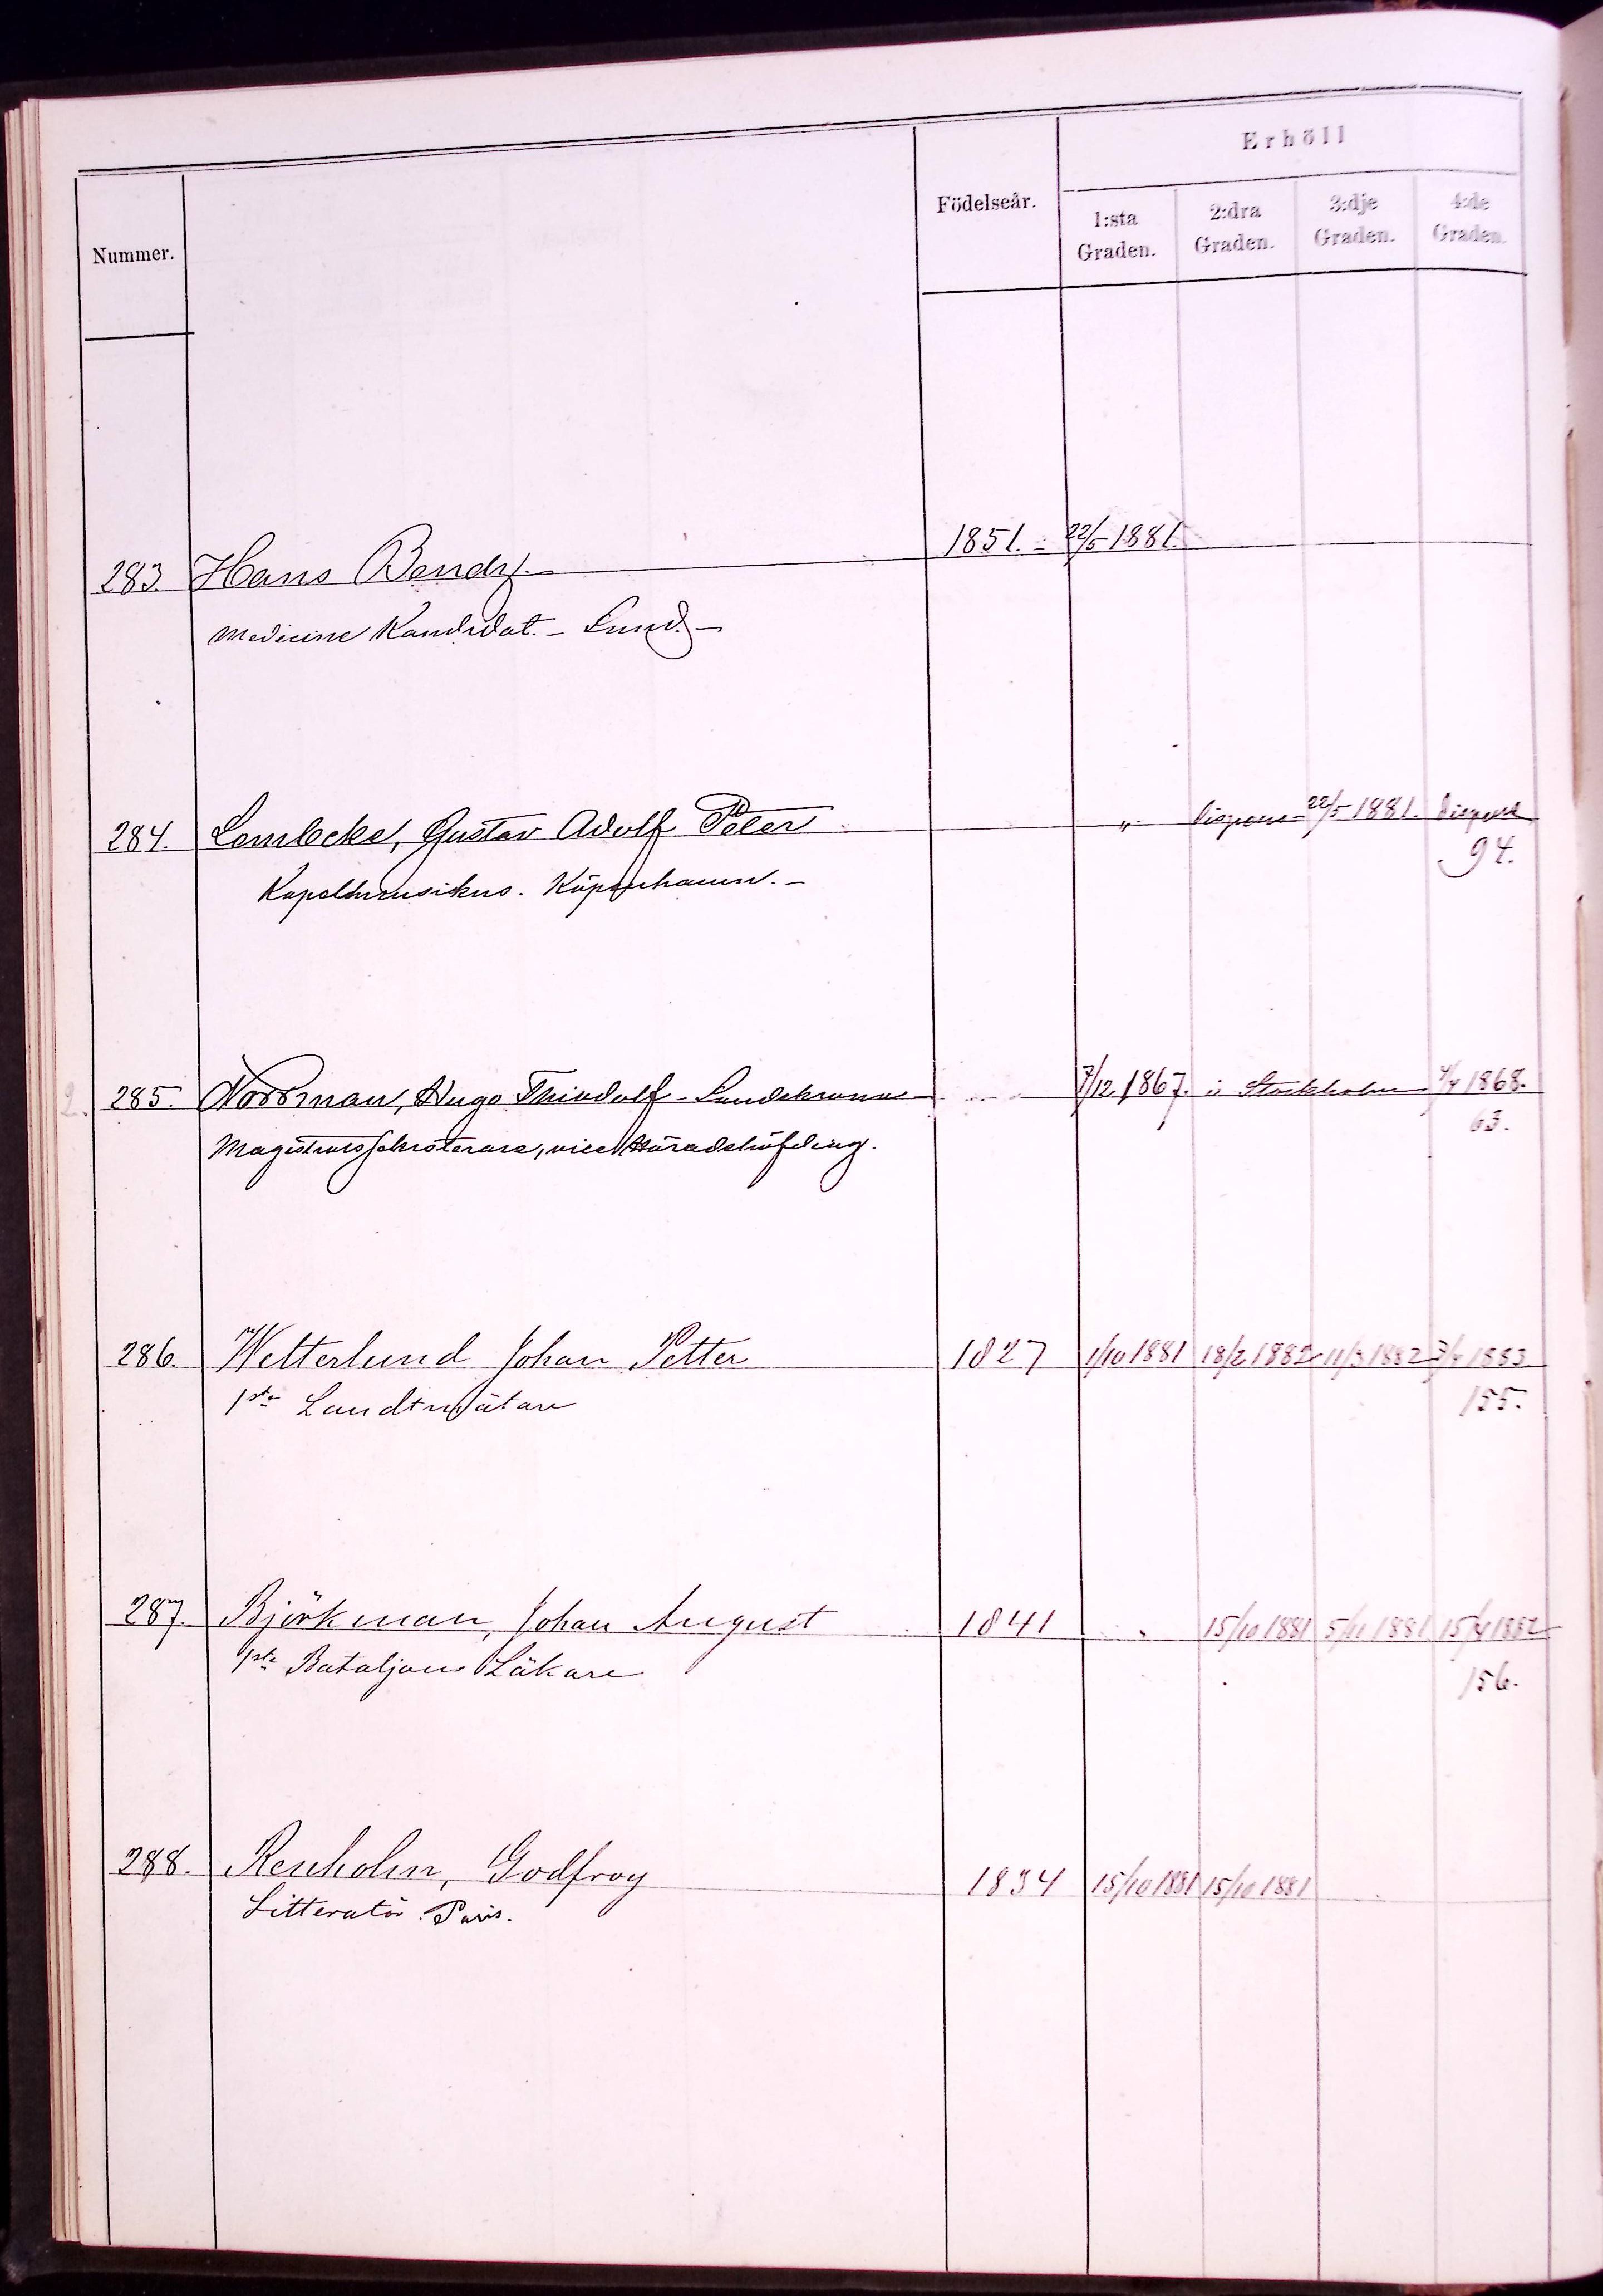 Erhöll
Nummer. Födelseår. 1:sta Graden. 2:dra Graden. 3:dje Graden. 4:de Graden.
283. Hans Bendz. 1851. 22/5 1881.
Medicine Kandidat. - Lund. -
284. Lembcke, Gustav Adolf Peter " Dispens 22/5 1881. Dispens
94.
Kapellmusikus. Köpenhamn. -
2. 285. Norrman, Hugo Thiodolf - Landskrona 7/12 1867. i Stockholm 1868.
63.
Magistratssekreterare, vice Häradshöfding.
286. Wetterlund Johan Petter 1827 1/10 1881 18/2 1882 11/3 1882 1883
1sta Landtmätare 155.
287. Björkman, Johan August 1841 " 15/10 1881 5/11 1881 15/4 1882
1sta Bataljons Läkare 156.
288. Renholm, Godfroy 1834 15/10 1881 15/10 1881
Litteratör. Paris.